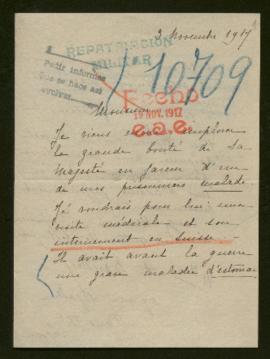 2 Novembre 1917
REPATRIACIÓN
MILITAR
Pedir informes
10709
Fecho
19 NOV. 1917
Monsieur
Je viens implorer
la grande bonté de Sa
Majesté en faveur d'un
de mes prisonniers malade
Je voudrais pour lui une
visite médicale et son
internement en Suisse.
Il avait avant la guerre
une grave maladie d'estomac